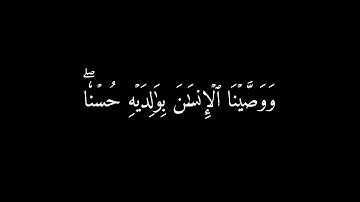 وَوَصَّيْنَا ٱلْإِنسَٰنَ بِوَٰلِدَيْهِ حُسْنًۭا ۖ